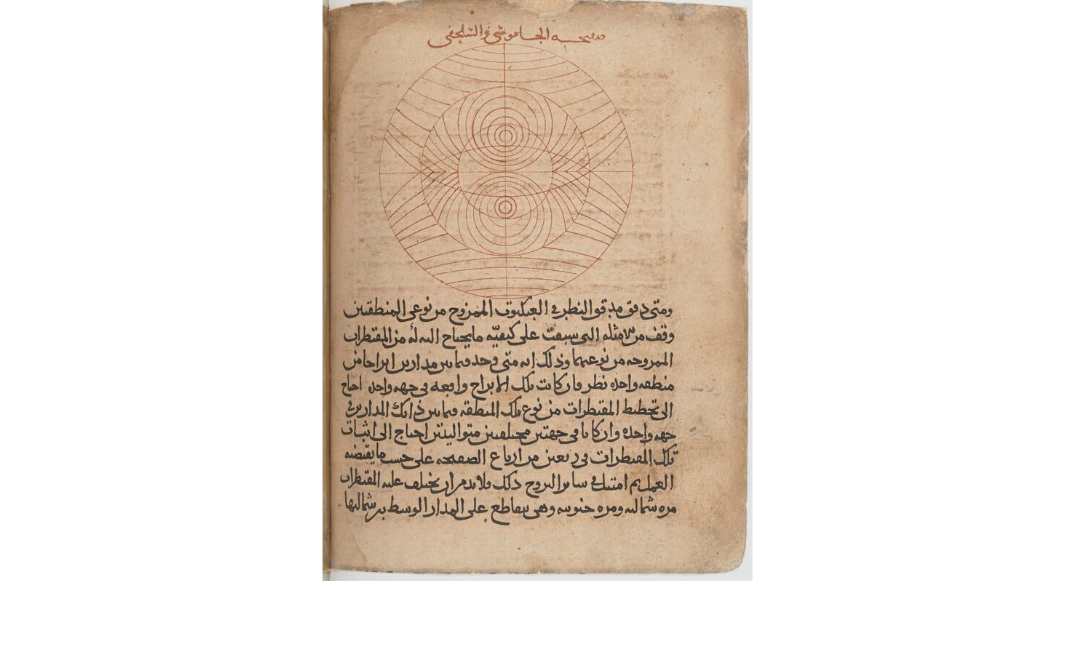 صفيحة الجاموسي والسلحفي
ومتى دقق مدقق النظر في العنكبوت الممزوج من نوعي المنطقتين
وقف من الامثلة التي سبقت على كيفية ما يحتاج اليه له من المقنطرات
الممزوجه من نوعيهما وذلك انه متى وجد فيما بين مدارين ابراجا من
منطقه واحده نظر فان كانت تلك الابراج واقعه في جهه واحده احتاج
الى تخطيط المقنطرات من نوع تلك المنطقه فيما بين ذانك المدارين في
جهه واحده وان كانا في جهتين مختلفتين متواليتين احتاج الى اثبات
تلك المقنطرات في ربعين من ارباع الصفيحه على حسب ما يقتضيه
العمل ثم امتثل في ساير البروج ذلك ولا بد من ان يختلف عليه المقنطرات
مره شماليه ومره جنوبيه وهي تتقاطع على المدار الوسط بين شماليها